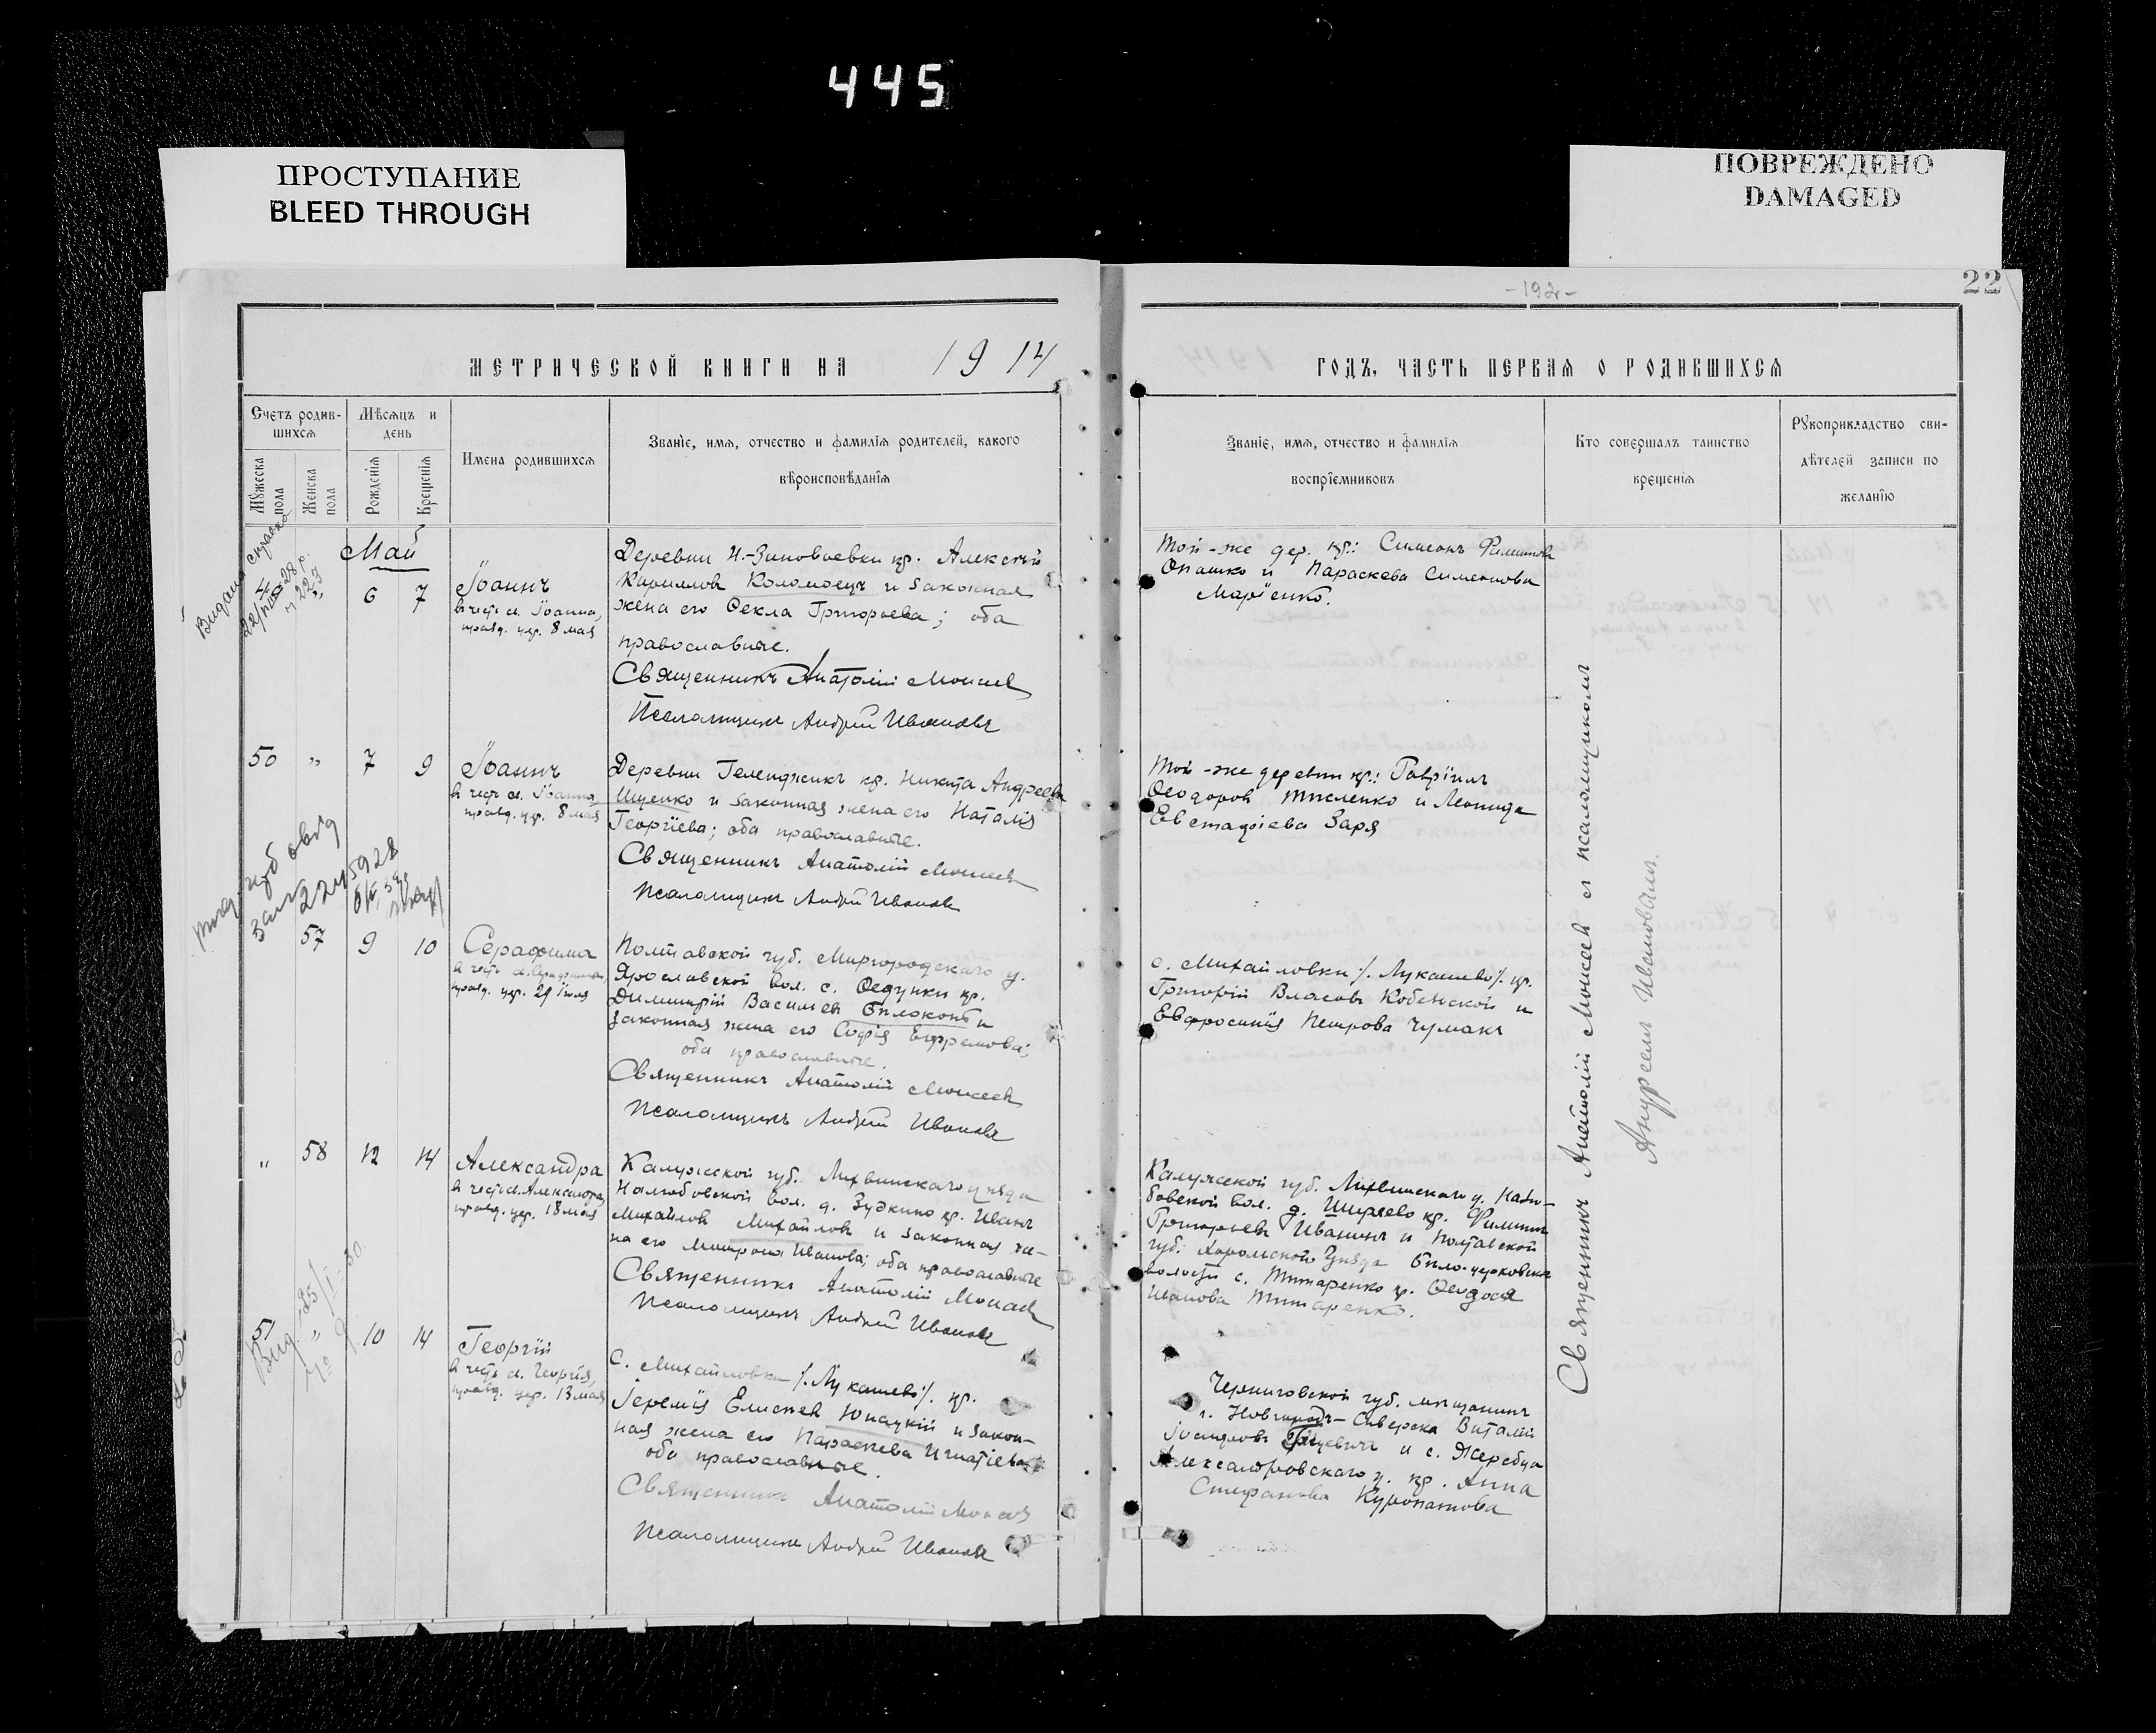 445
ПРОСТУПАНИЕ
BLEED THROUGH
ПОВРЕЖДЕНО
DAMAGED
22
-192-
МЕТРИЧЕСКОЙ КНИГИ НА 1914
ГОДЪ, ЧАСТЬ ПЕРВАЯ О РОДИВШИХСЯ
Счетъ родив-
шихся
Мѣсяцъ и
день
Мужеска
пола
Женска
пола
Рожденія
Крещенія
Имена родившихся
Званіе, имя, отчество и фамилія родителей, какого
вѣроисповѣданія
Званіе, имя, отчество и фамилія
воспріемниковъ
Кто совершалъ таинство
крещенія
Рукоприкладство сви-
дѣтелей записи по
желанію
Май
Видана справка
6 7
Іоаннъ
въ честь св. Іоанна,
празд. цер. 8 мая
Деревни Н.-Зиновьевки кр. Алексѣй
Кирилловъ Коломоецъ и законная
жена его Ѳекла Григорьева; оба
православные.
Священникъ Анатолій Моисеев
Псаломщикъ Андрей Ивановъ
Той-же дер. кр.: Симеонъ Филиппов
Опашко и Параскева Симеонова
Маріенко.
50 " 7 9
Іоаннъ
въ честь св. Іоанна,
празд. цер. 8 мая
Деревни Геленджикъ кр. Никита Андреевъ
Ищенко и законная жена его Наталія
Георгіева; оба православные.
Священникъ Анатолій Моисеев
Псаломщикъ Андрей Ивановъ
Той-же деревни кр.: Гавріилъ
Ѳеодоровъ Тысленко и Леонида
Евстафіева Заря
57 9 10
Серафима
празд. цер. 29 іюля
Полтавской губ. Миргородскаго у.
Ярославской вол. с. Ѳедунки кр.
Димитрій Васильевъ Бѣлоконь и
законная жена его Софія Ефремова;
оба православные.
Священникъ Анатолій Моисеев
Псаломщикъ Андрей Ивановъ
с. Михайловки /. Лукашево/. кр.
Григорій Власовъ Кобенской и
Евфросинія Петрова Чумакъ
" 58 12 14
Александра
въ честь св. Александры,
празд. цер. 18 мая
Калужской губ. Лихвинскаго уѣзда
вол. д. Зудкино кр. Иванъ
Михайловъ Михайловъ и законная же-
на его Митродія Иванова; оба православные
Священникъ Анатолій Моисеев
Псаломщикъ Андрей Ивановъ
Калужской губ. Лихвинскаго у.
бовской вол. д. Ширяево кр. Филиппъ
Григорьевъ Иванинъ и Полтавской
губ. уѣзда Бѣло-церковской
волости с. Титаренко кр. Ѳеодосія
Иванова Титаренко.
51 " 10 14
Георгій
въ честь св. Георгія,
празд. цер. 13 мая
с. Михайловки /. Лукашево/. кр.
Іеремія Елисеев Юнацкій и закон-
ная жена его Параскева Игнатіева;
оба православные.
Священникъ Анатолій Моисеев
Псаломщикъ Андрей Ивановъ
Черниговской губ. мѣщанинъ
г. Новгородъ-Сѣверска Виталій
и с. Жеребца
Александровскаго у. кр. Анна
Стефанова Куропатова
Священникъ Анатолій Моисеев с псаломщикомъ
Андреемъ Ивановымъ.